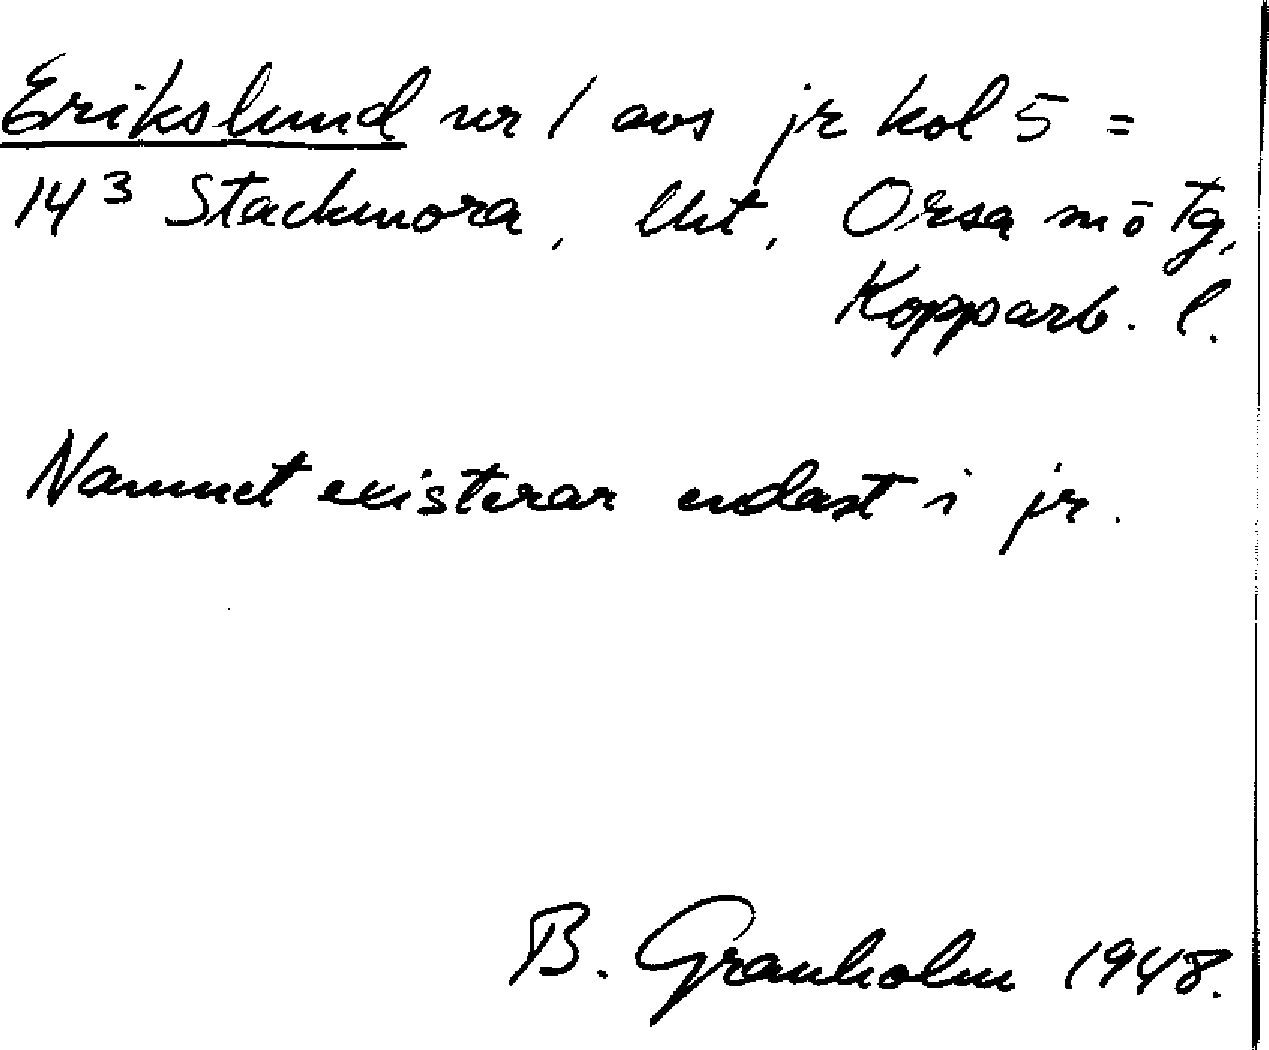 Erikslund nr 1 avs jr kol 5 =
14³ Stackmora, Ukt, Orsa sn o tg,
Kopparb. l.
Namnet existerar endast i jr.
B. Granholm 1948.